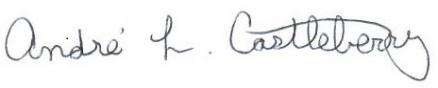 André L. Castleberry